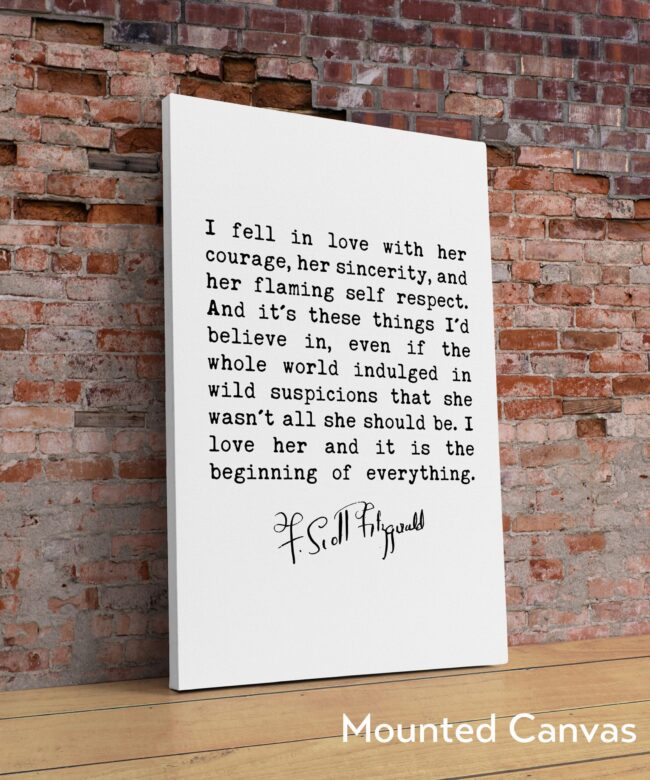 I fell in love with her
courage, her sincerity, and
her flaming self respect.
And it's these things I'd
believe in, even if the
whole world indulged in
wild suspicions that she
wasn't all she should be. I
love her and it is the
beginning of everything.
F. Scott Fitzgerald
Mounted Canvas